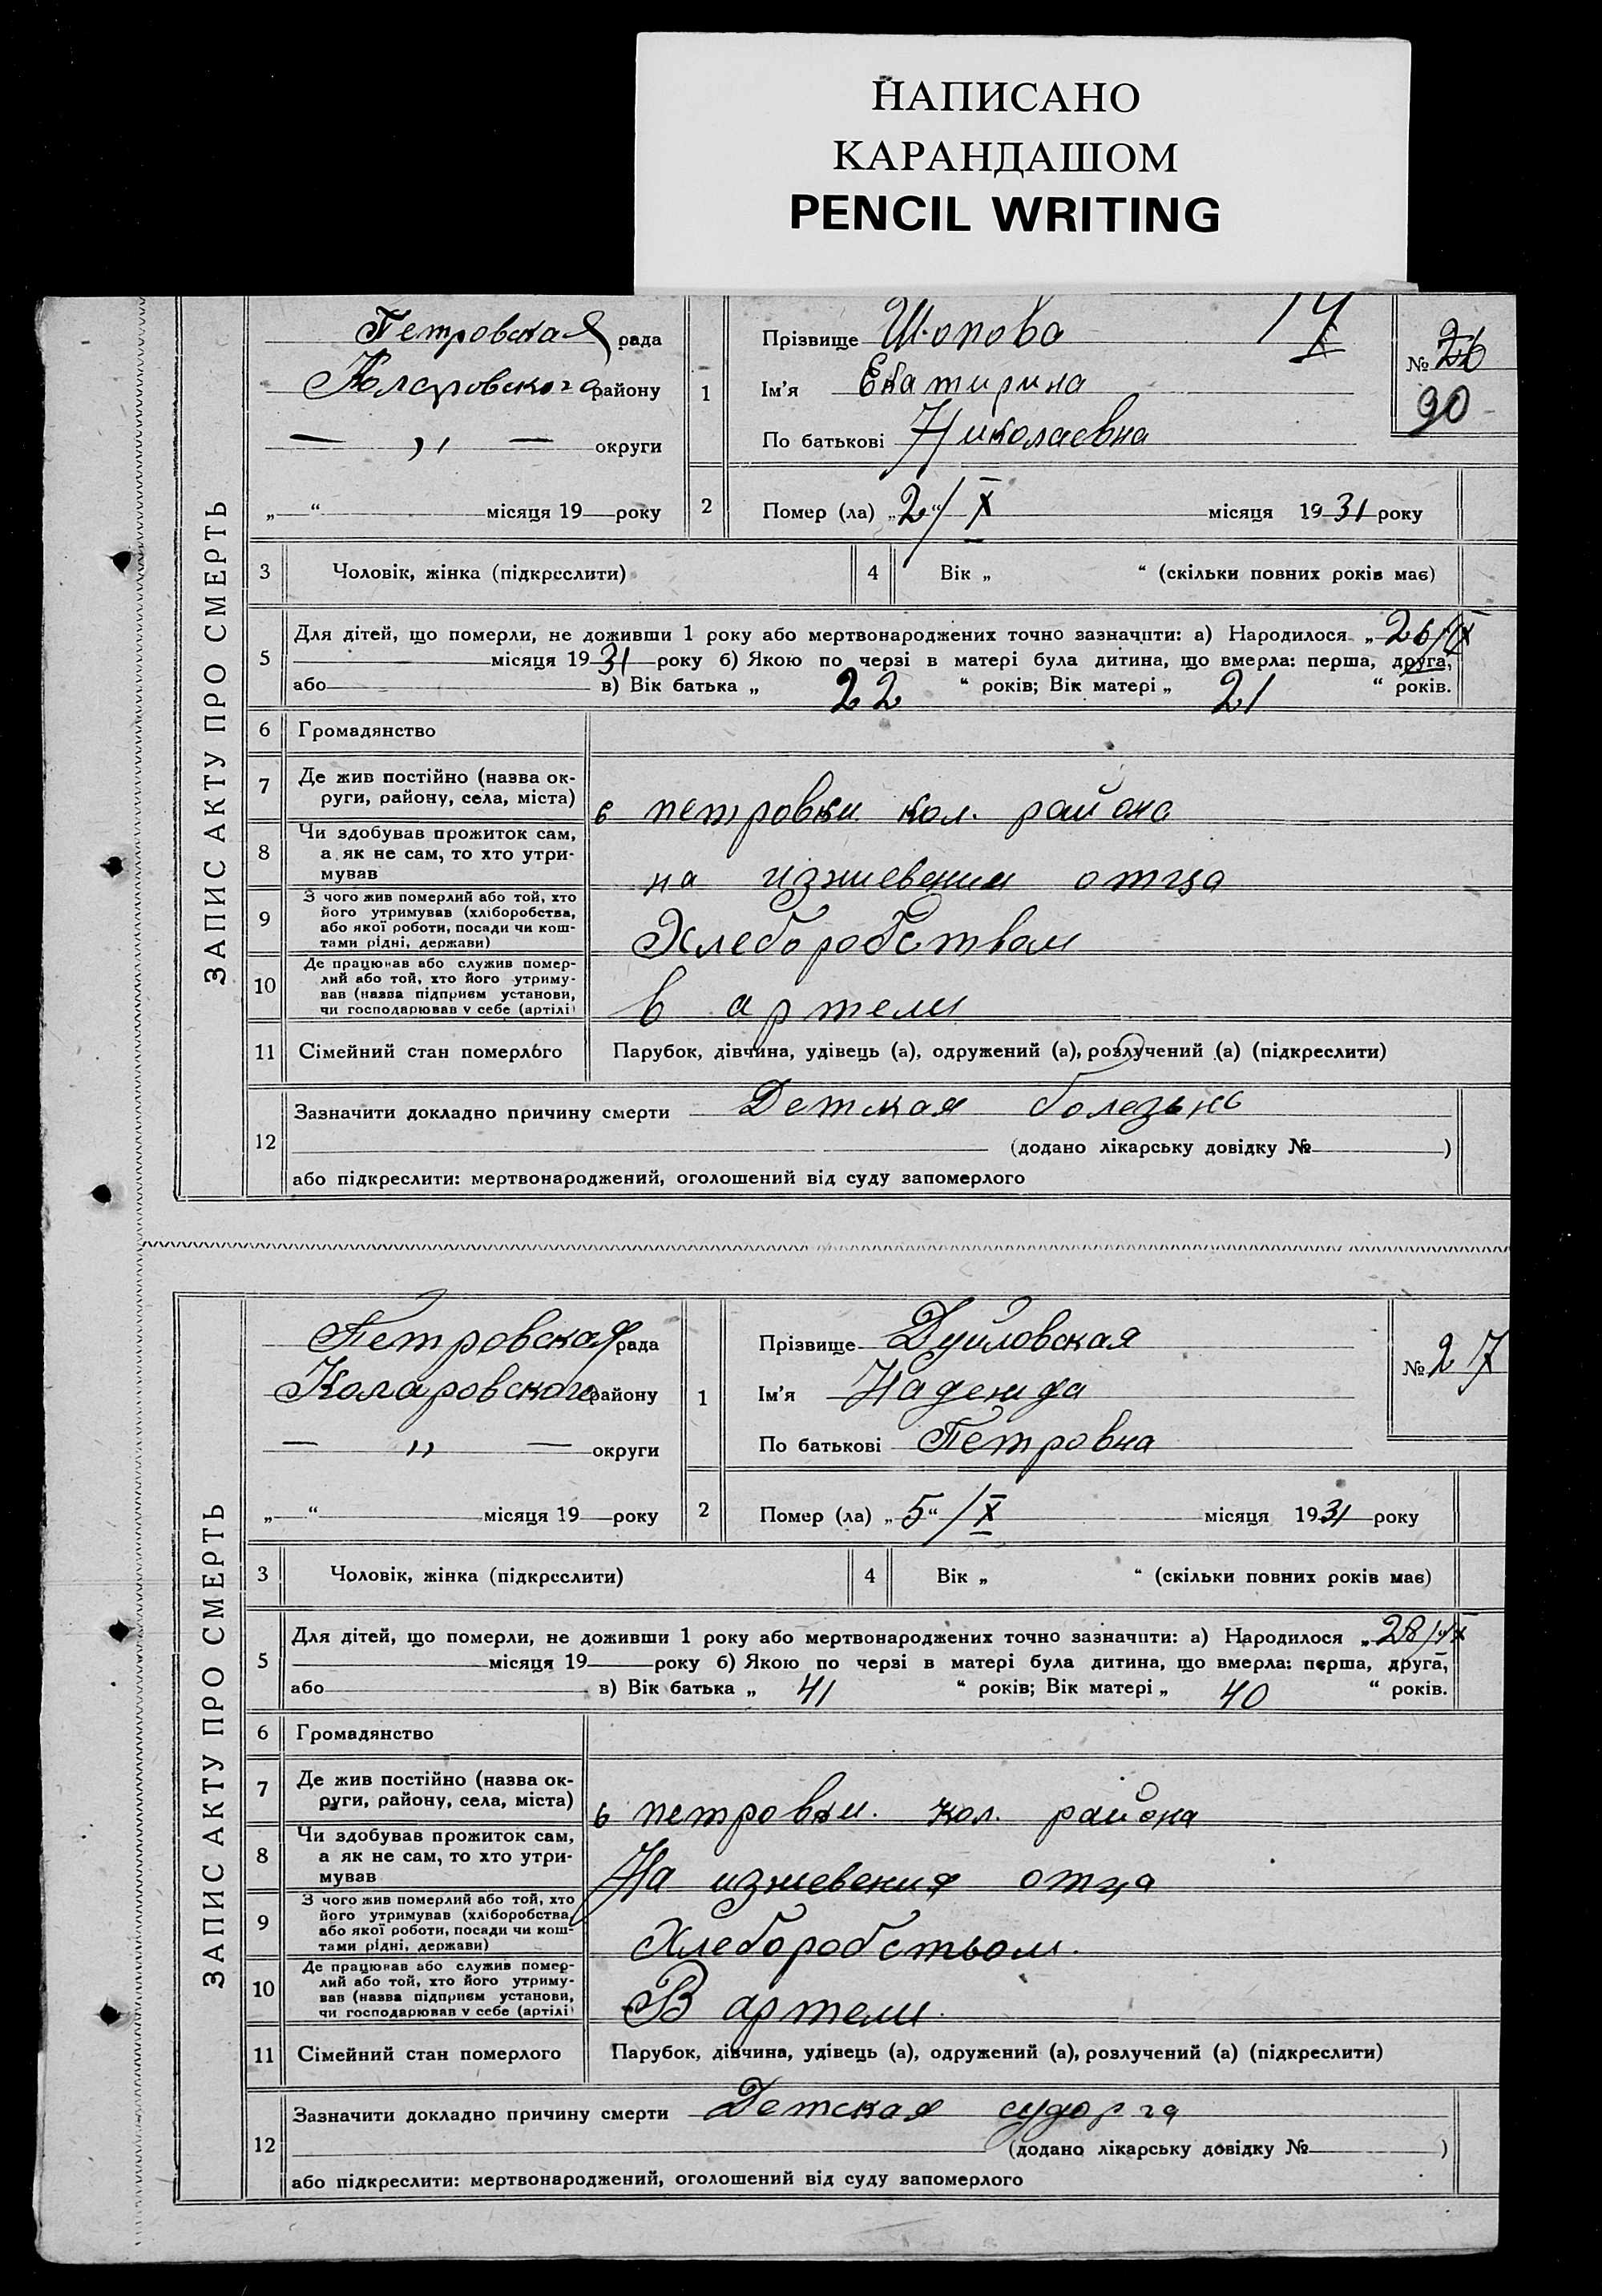 НАПИСАНО
КАРАНДАШОМ
PENCIL WRITING
ЗАПИС АКТУ ПРО СМЕРТЬ
Петровская рада
Коларовского району
— „ — округи
„—“ місяця 19—року
1
Прізвище Шопова
Ім'я Екатирина
По батькові Николаевна
№ 26
90
2 Помер (ла) „2“/X місяця 1931 року
3 Чоловік, жінка (підкреслити)
4 Вік „ “ (скільки повних років має)
5 Для дітей, що померли, не доживши 1 року або мертвонароджених точно зазначити: а) Народилося „26/IX
місяця 1931 року б) Якою по черзі в матері була дитина, що вмерла: перша, друга,
або в) Вік батька „ 22 “ років; Вік матері „ 21 “ років.
6 Громадянство
7 Де жив постійно (назва ок-
руги, району, села, міста)
с петровки кол. района
8 Чи здобував прожиток сам,
а як не сам, то хто утри-
мував
на изжевении отца
9 З чого жив померлий або той, хто
його утримував (хліборобства,
або якої роботи, посади чи кош-
тами рідні, держави)
Хлеборобством
10 Де працював або служив помер-
лий або той, хто його утриму-
вав (назва підприєм установи,
чи господарював у себе (артілі)
в артели
11 Сімейний стан померлого Парубок, дівчина, удівець (а), одружений (а), розлучений (а) (підкреслити)
12 Зазначити докладно причину смерти Детская болезьнь
(додано лікарську довідку № )
або підкреслити: мертвонароджений, оголошений від суду запомерлого
ЗАПИС АКТУ ПРО СМЕРТЬ
Петровская рада
Коларовского району
— „ — округи
„—“ місяця 19—року
1
Прізвище Дуйловская
Ім'я Надежда
По батькові Петровна
№ 27
2 Помер (ла) „5“/X місяця 1931 року
3 Чоловік, жінка (підкреслити)
4 Вік „ “ (скільки повних років має)
5 Для дітей, що померли, не доживши 1 року або мертвонароджених точно зазначити: а) Народилося „28/
місяця 19 року б) Якою по черзі в матері була дитина, що вмерла: перша, друга,
або в) Вік батька „ 41 “ років; Вік матері „ 40 “ років.
6 Громадянство
7 Де жив постійно (назва ок-
руги, району, села, міста)
с петровки. кол. района
8 Чи здобував прожиток сам,
а як не сам, то хто утри-
мував
На изжевения отца
9 З чого жив померлий або той, хто
його утримував (хліборобства,
або якої роботи, посади чи кош-
тами рідні, держави)
Хлеборобством.
10 Де працював або служив помер-
лий або той, хто його утриму-
вав (назва підприєм установи,
чи господарював у себе (артілі)
В артели.
11 Сімейний стан померлого Парубок, дівчина, удівець (а), одружений (а), розлучений (а) (підкреслити)
12 Зазначити докладно причину смерти Детская судорга
(додано лікарську довідку № )
або підкреслити: мертвонароджений, оголошений від суду запомерлого